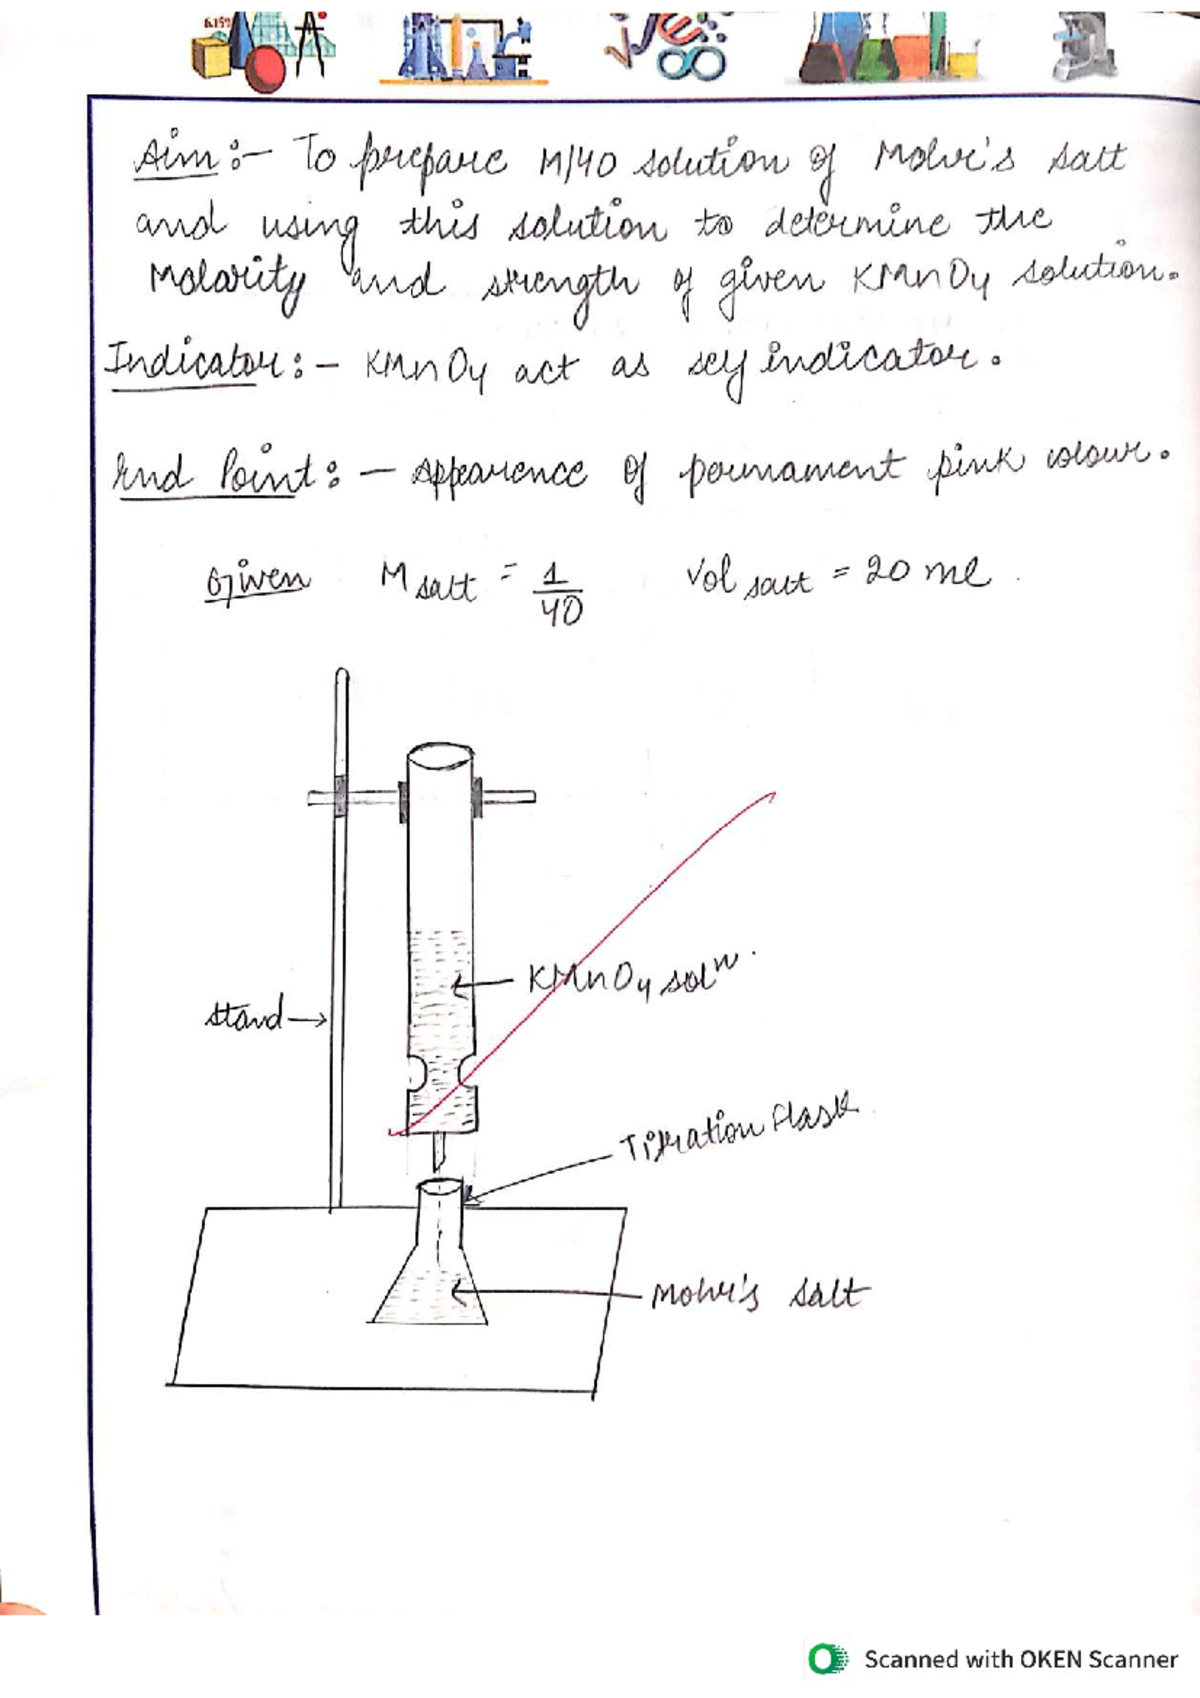 Aim:- To prepare M/40 solution of Mohr's salt
and using this solution to determine the
Molarity and strength of given KMnO4 solution.
Indicator:- KMnO4 act as self indicator.
End Point:- Appearence of pernament pink colour.
Given M salt = 1/40 Vol salt = 20 ml.
KMnO4 soln.
stand→
Titration Flask
Mohr's salt
Scanned with OKEN Scanner